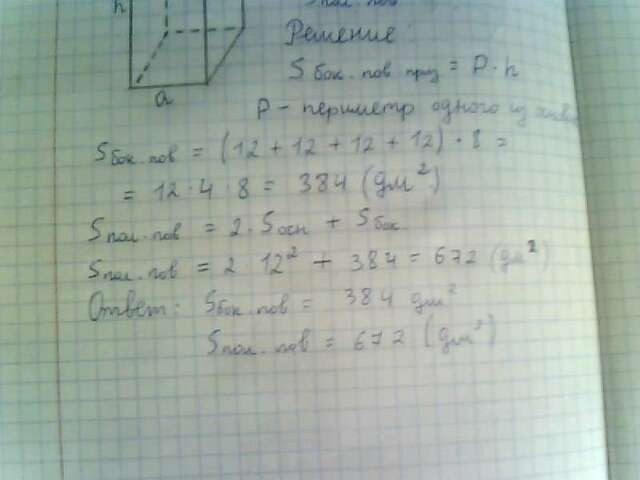 h
Sпол. пов
a
Решение:
S бок. пов приз = P · h
P – периметр одного из
Sбок. пов = (12 + 12 + 12 + 12) · 8 =
= 12 · 4 · 8 = 384 (дм²)
Sпол. пов = 2 · Sосн + Sбок
Sпол. пов = 2 · 12² + 384 = 672 (дм²)
Ответ: Sбок. пов = 384 дм²
Sпол. пов = 672 (дм²)